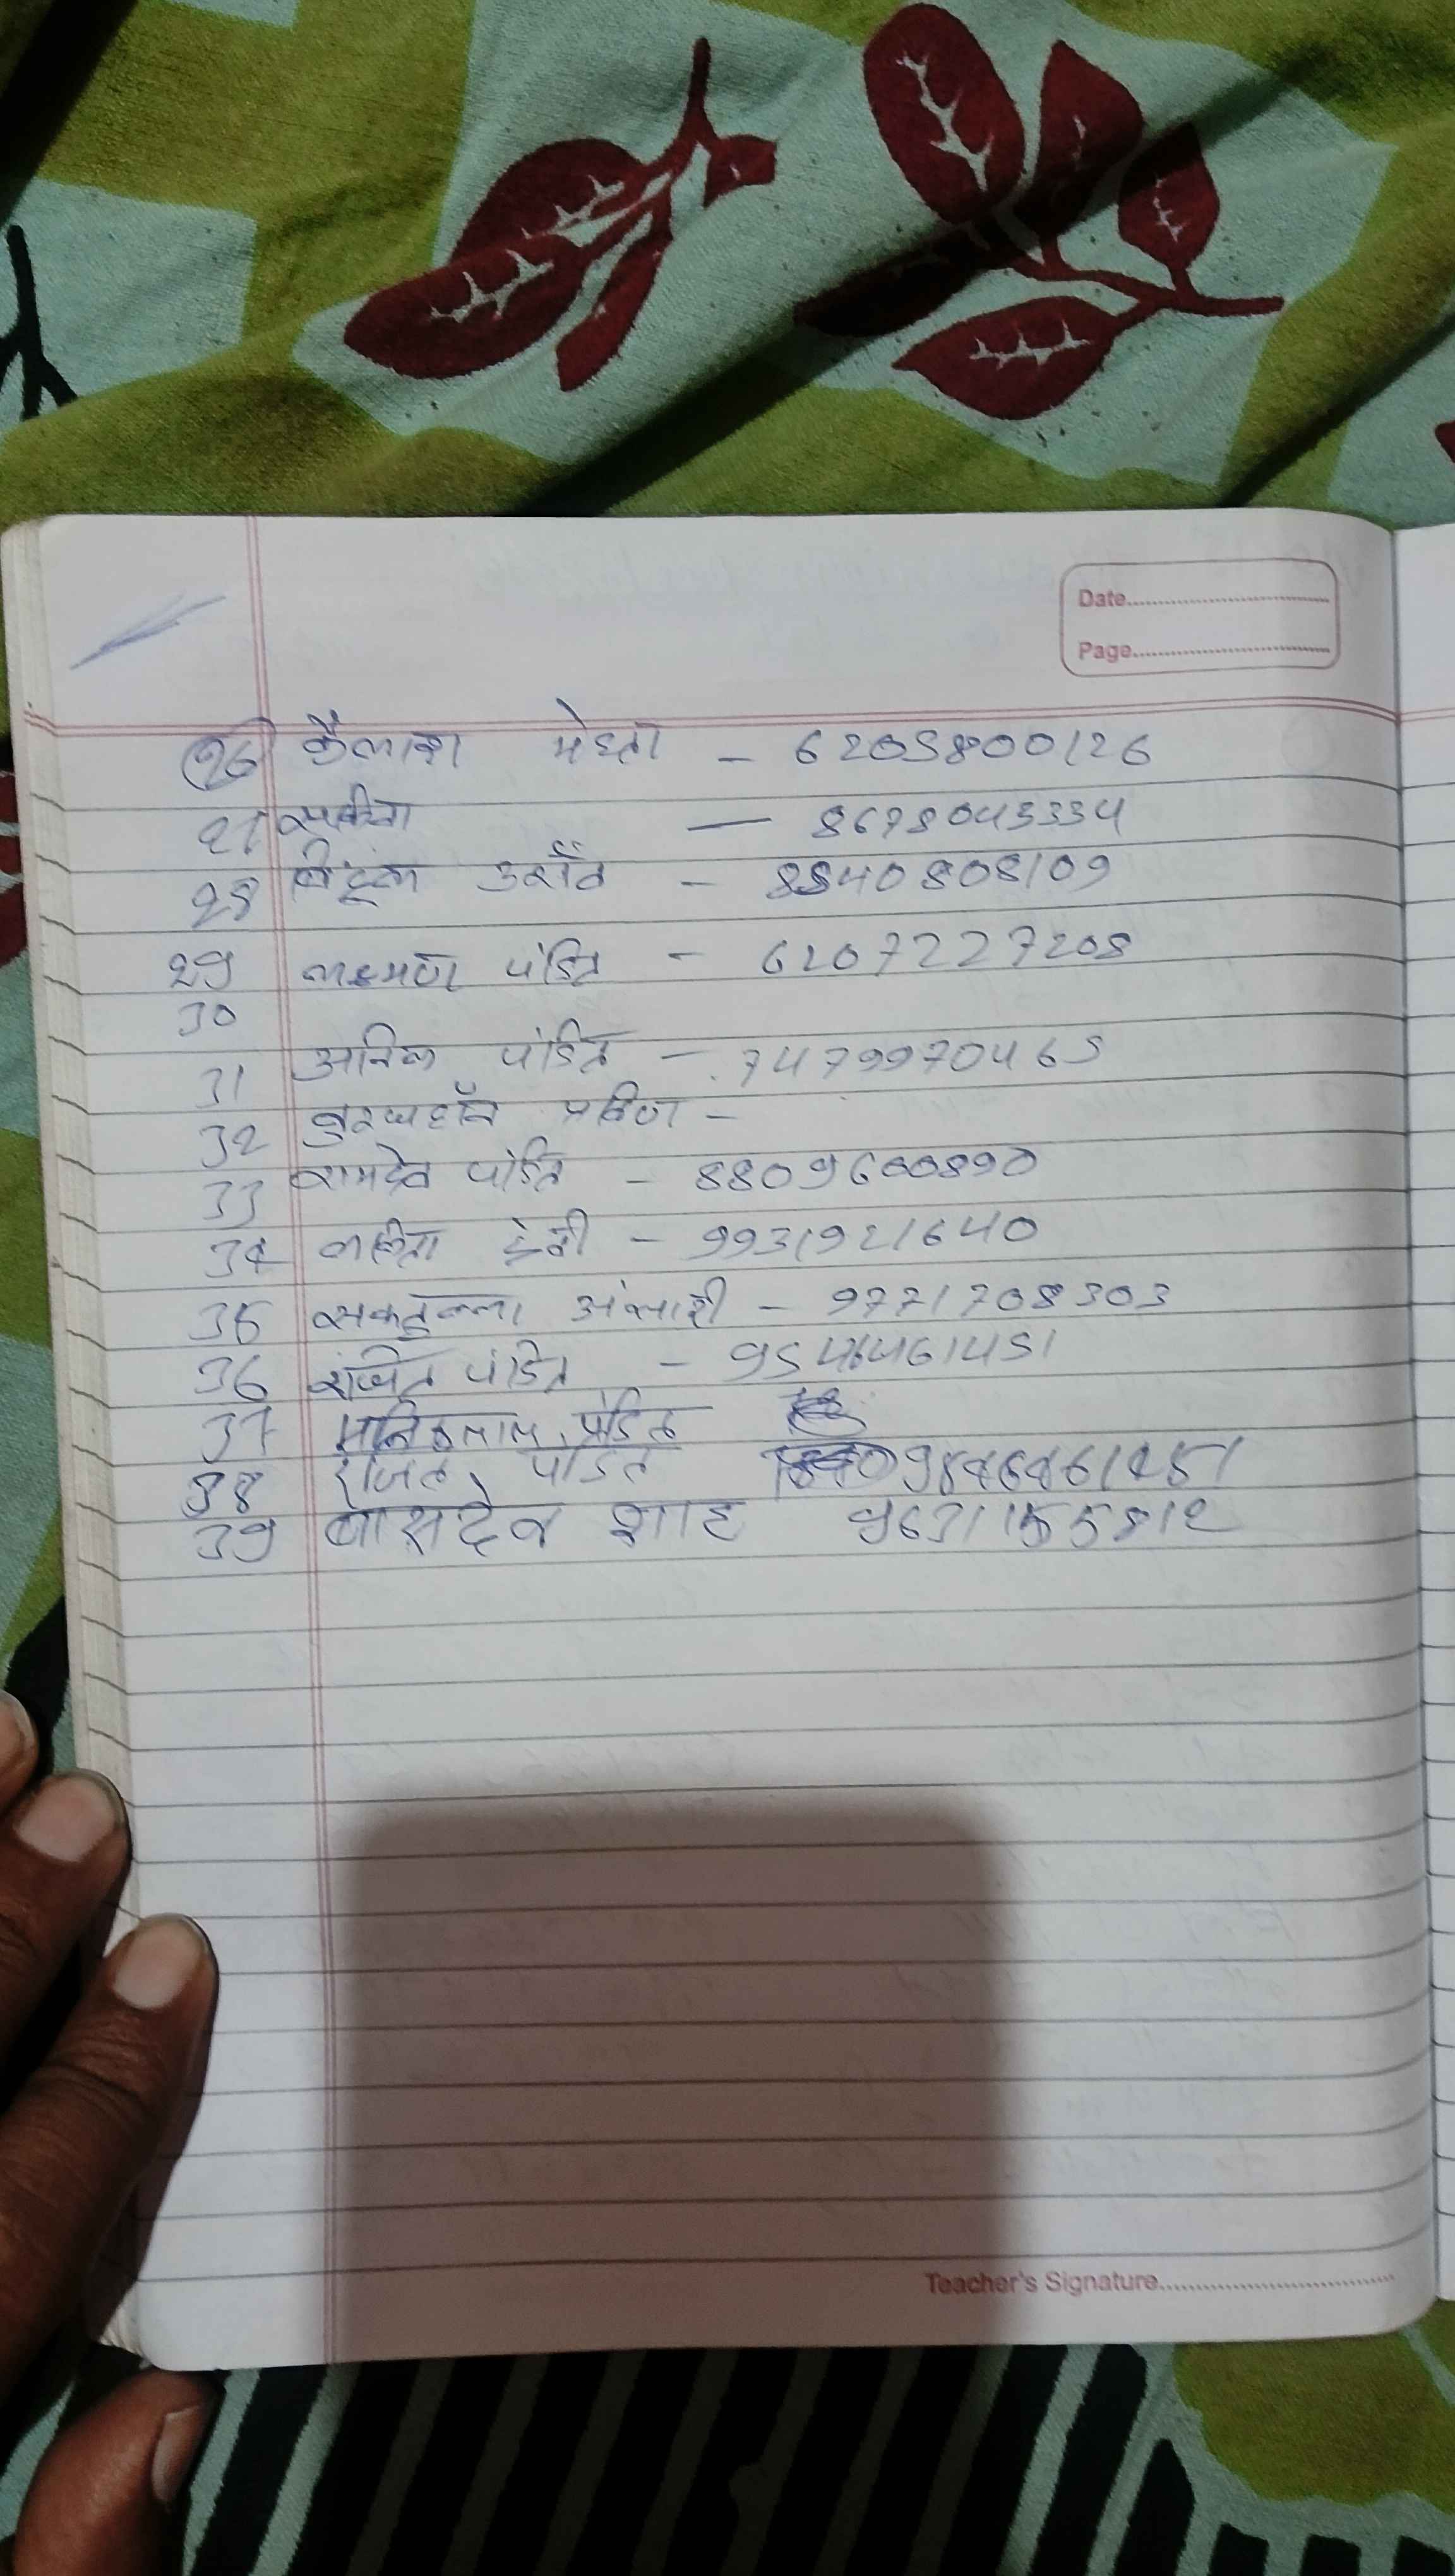 Date
Page
26 कैलाश मेहता - 6205800126
27 सबिता — 8678045334
28 उराँव - 8840808109
29 लक्ष्मण पंडित - 6207227208
30
31 अनिल पंडित - 7479970465
32 नुरजहाँन प्रविण -
33 रामदेव पंडित - 8809600890
34 ललिता देवी - 9931921640
35 सकदुल्ला अंसारी - 9771708303
36 रंजित पंडित -
37 मानिकलाल पंडित
38 रंजित पंडित
39 बासदेव शाह
Teacher's Signature